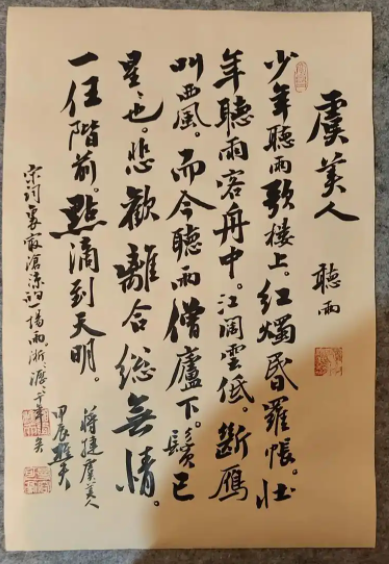 虞美人
聽雨
少年聽雨歌楼上。红燭昏羅帳。壮
年聽雨客舟中。江阔雲低。斷雁
叫西風。而今聽雨僧廬下。鬓已
星〻也。悲歡離合総無情。
一任階前。點滴到天明。
蔣捷虞美人
甲辰
宋词滄涼一場雨